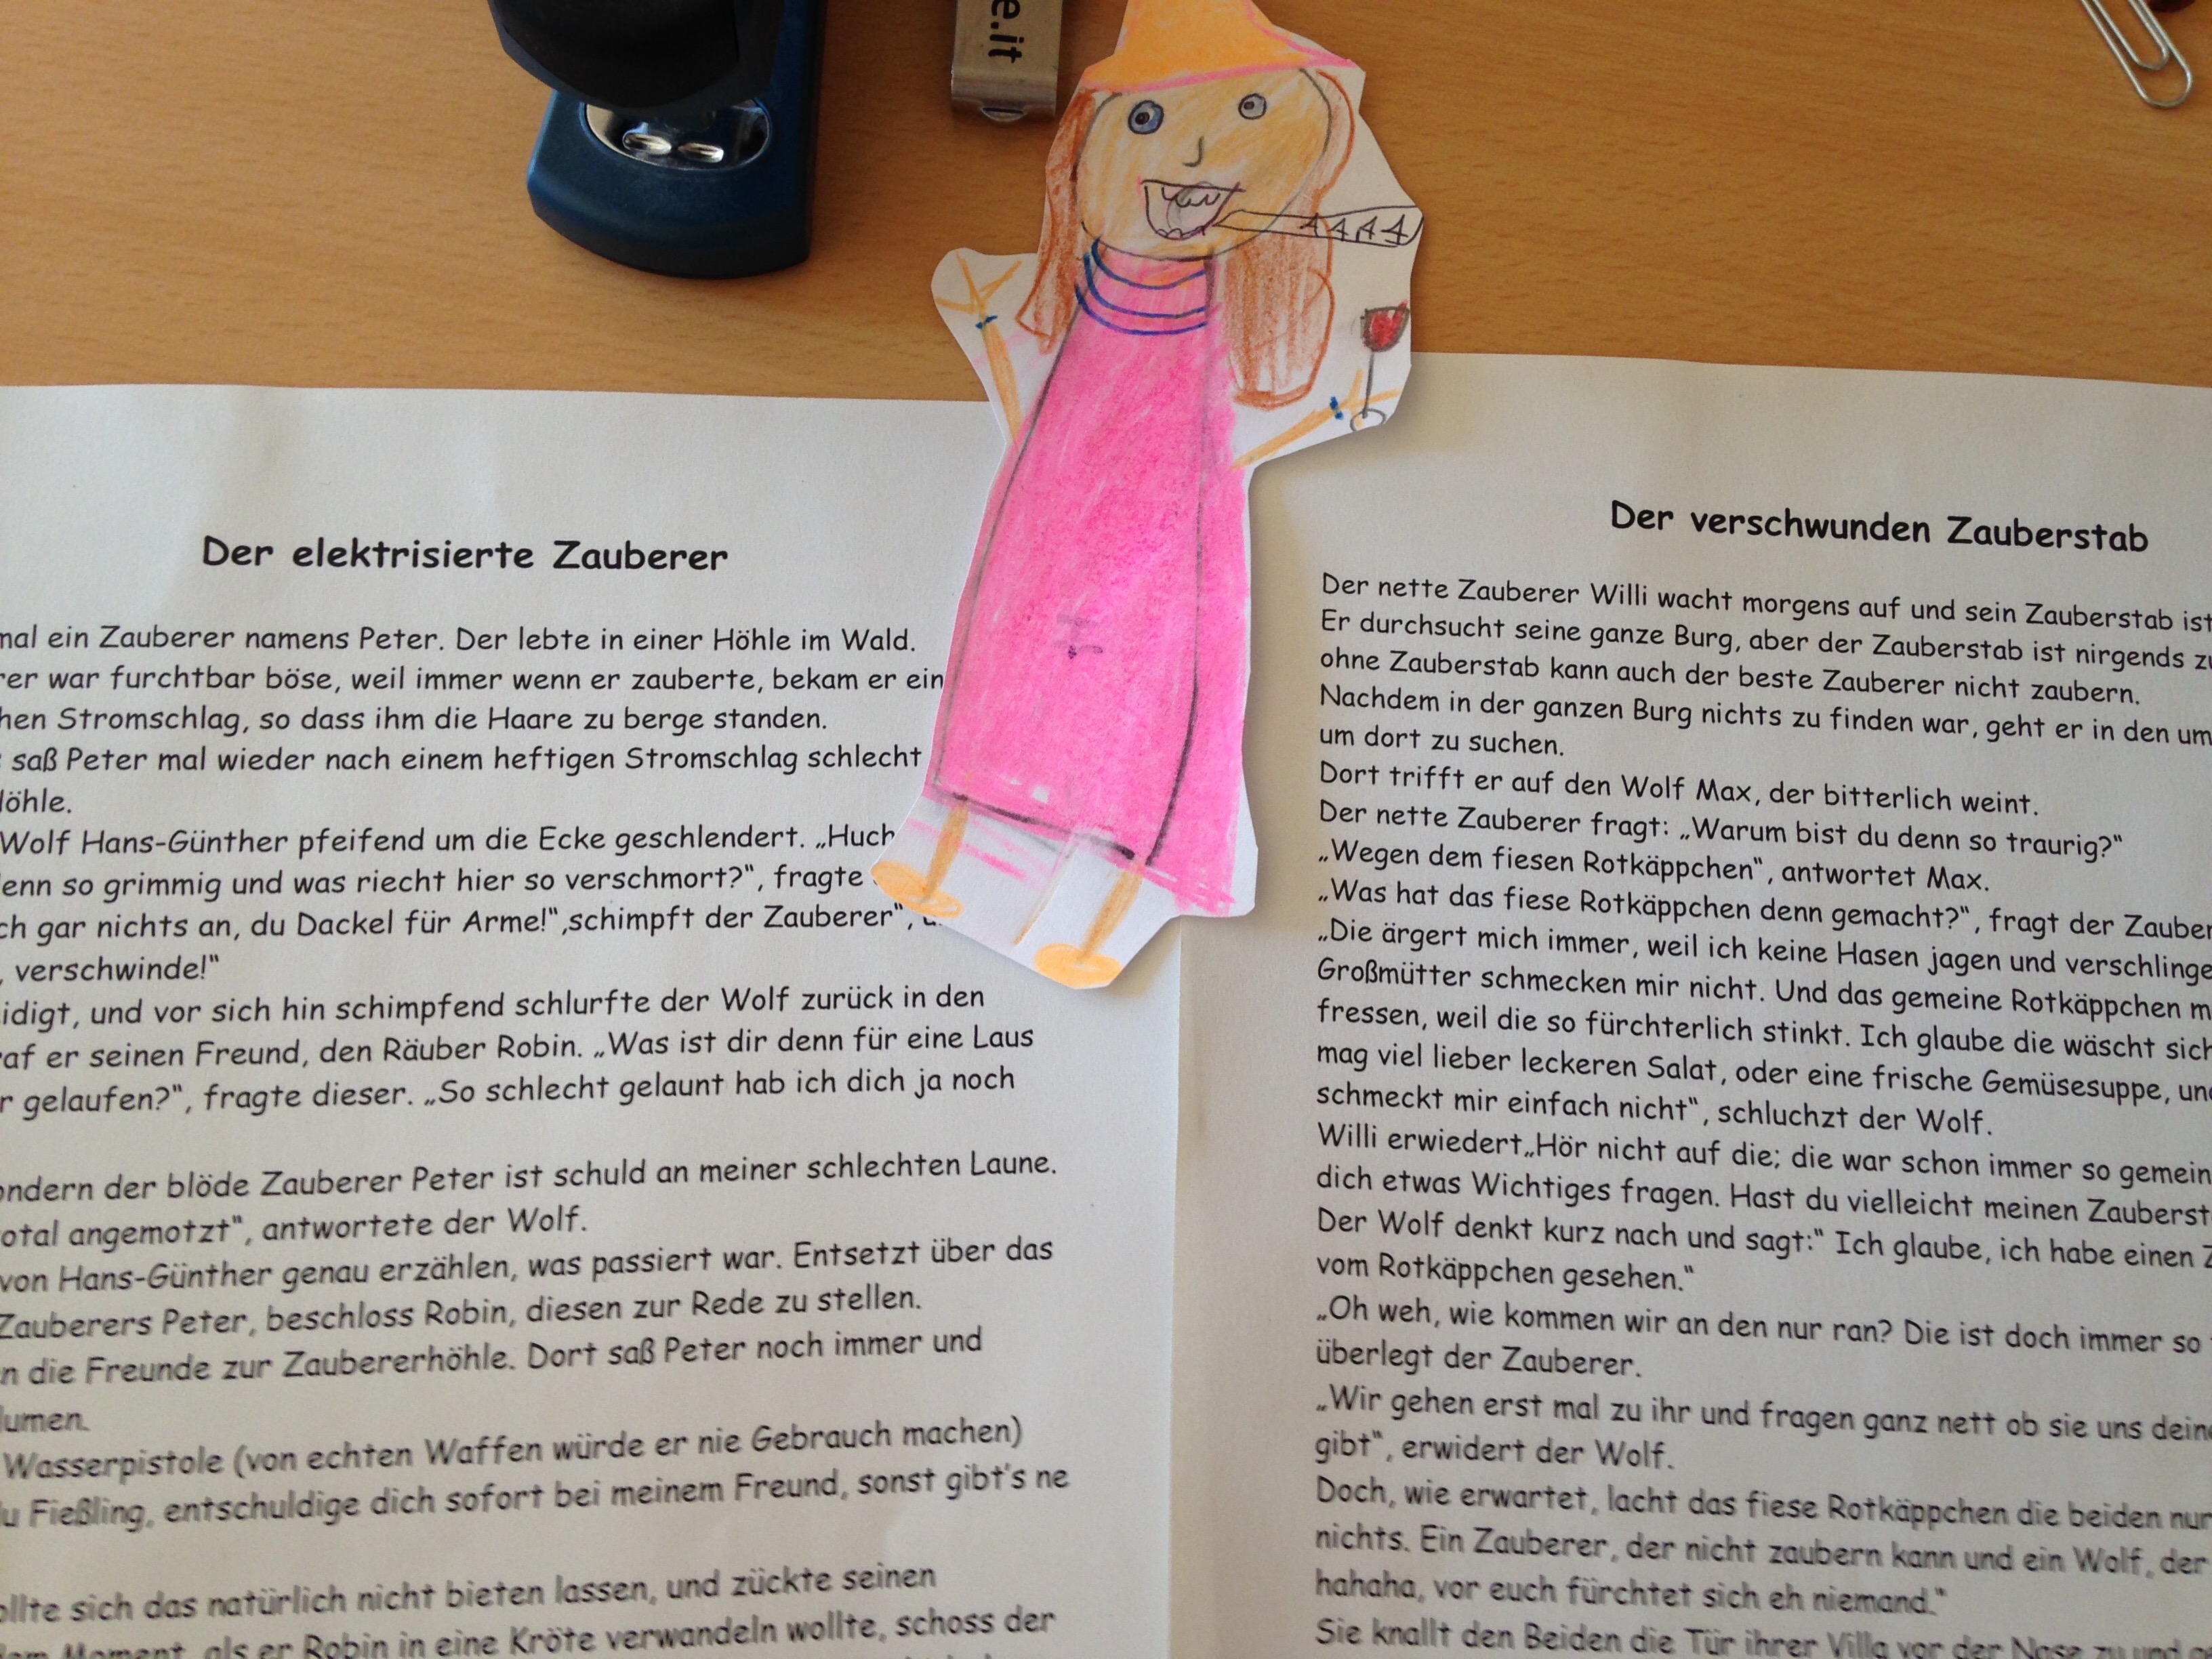 e.it
AAAA
Der elektrisierte Zauberer
mal ein Zauberer namens Peter. Der lebte in einer Höhle im Wald.
war furchtbar böse, weil immer wenn er zauberte, bekam er ein
Stromschlag, so dass ihm die Haare zu berge standen.
saß Peter mal wieder nach einem heftigen Stromschlag schlecht
Höhle.
Wolf Hans-Günther pfeifend um die Ecke geschlendert. „Huch
denn so grimmig und was riecht hier so verschmort?“, fragte
ch gar nichts an, du Dackel für Arme!“,schimpft der Zauberer“,
, verschwinde!“
idigt, und vor sich hin schimpfend schlurfte der Wolf zurück in den
raf er seinen Freund, den Räuber Robin. „Was ist dir denn für eine Laus
r gelaufen?“, fragte dieser. „So schlecht gelaunt hab ich dich ja noch
ondern der blöde Zauberer Peter ist schuld an meiner schlechten Laune.
total angemotzt“, antwortete der Wolf.
von Hans-Günther genau erzählen, was passiert war. Entsetzt über das
Zauberers Peter, beschloss Robin, diesen zur Rede zu stellen.
n die Freunde zur Zaubererhöhle. Dort saß Peter noch immer und
lumen.
Wasserpistole (von echten Waffen würde er nie Gebrauch machen)
du Fießling, entschuldige dich sofort bei meinem Freund, sonst gibt's ne
ollte sich das natürlich nicht bieten lassen, und zückte seinen
dem Moment, als er Robin in eine Kröte verwandeln wollte, schoss der
Der verschwunden Zauberstab
Der nette Zauberer Willi wacht morgens auf und sein Zauberstab ist
Er durchsucht seine ganze Burg, aber der Zauberstab ist nirgends zu
ohne Zauberstab kann auch der beste Zauberer nicht zaubern.
Nachdem in der ganzen Burg nichts zu finden war, geht er in den um
um dort zu suchen.
Dort trifft er auf den Wolf Max, der bitterlich weint.
Der nette Zauberer fragt: „Warum bist du denn so traurig?“
„Wegen dem fiesen Rotkäppchen“, antwortet Max.
„Was hat das fiese Rotkäppchen denn gemacht?“, fragt der Zauber
„Die ärgert mich immer, weil ich keine Hasen jagen und verschlinge
Großmütter schmecken mir nicht. Und das gemeine Rotkäppchen m
fressen, weil die so fürchterlich stinkt. Ich glaube die wäscht sich
mag viel lieber leckeren Salat, oder eine frische Gemüsesuppe, und
schmeckt mir einfach nicht“, schluchzt der Wolf.
Willi erwiedert„Hör nicht auf die; die war schon immer so gemein
dich etwas Wichtiges fragen. Hast du vielleicht meinen Zauberst
Der Wolf denkt kurz nach und sagt:“ Ich glaube, ich habe einen Z
vom Rotkäppchen gesehen.“
„Oh weh, wie kommen wir an den nur ran? Die ist doch immer so
überlegt der Zauberer.
„Wir gehen erst mal zu ihr und fragen ganz nett ob sie uns deine
gibt“, erwidert der Wolf.
Doch, wie erwartet, lacht das fiese Rotkäppchen die beiden nur
nichts. Ein Zauberer, der nicht zaubern kann und ein Wolf, der
hahaha, vor euch fürchtet sich eh niemand.“
Sie knallt den Beiden die Tür ihrer Villa vor der Nase zu und